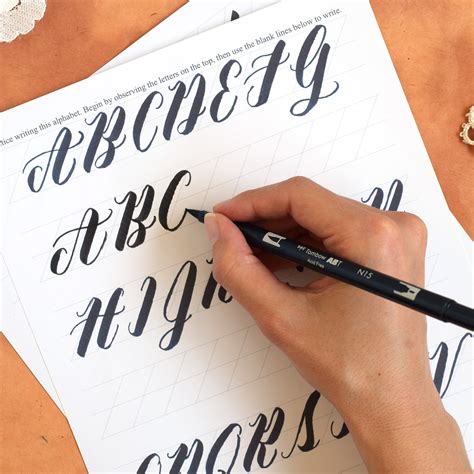 tice writing this alphabet. Begin by observing the letters on the top, then use the blank lines below to write.
ABCDEFG
ABC
HIJK
OPQRST
ABT Tombow ABT N15
Acid Free